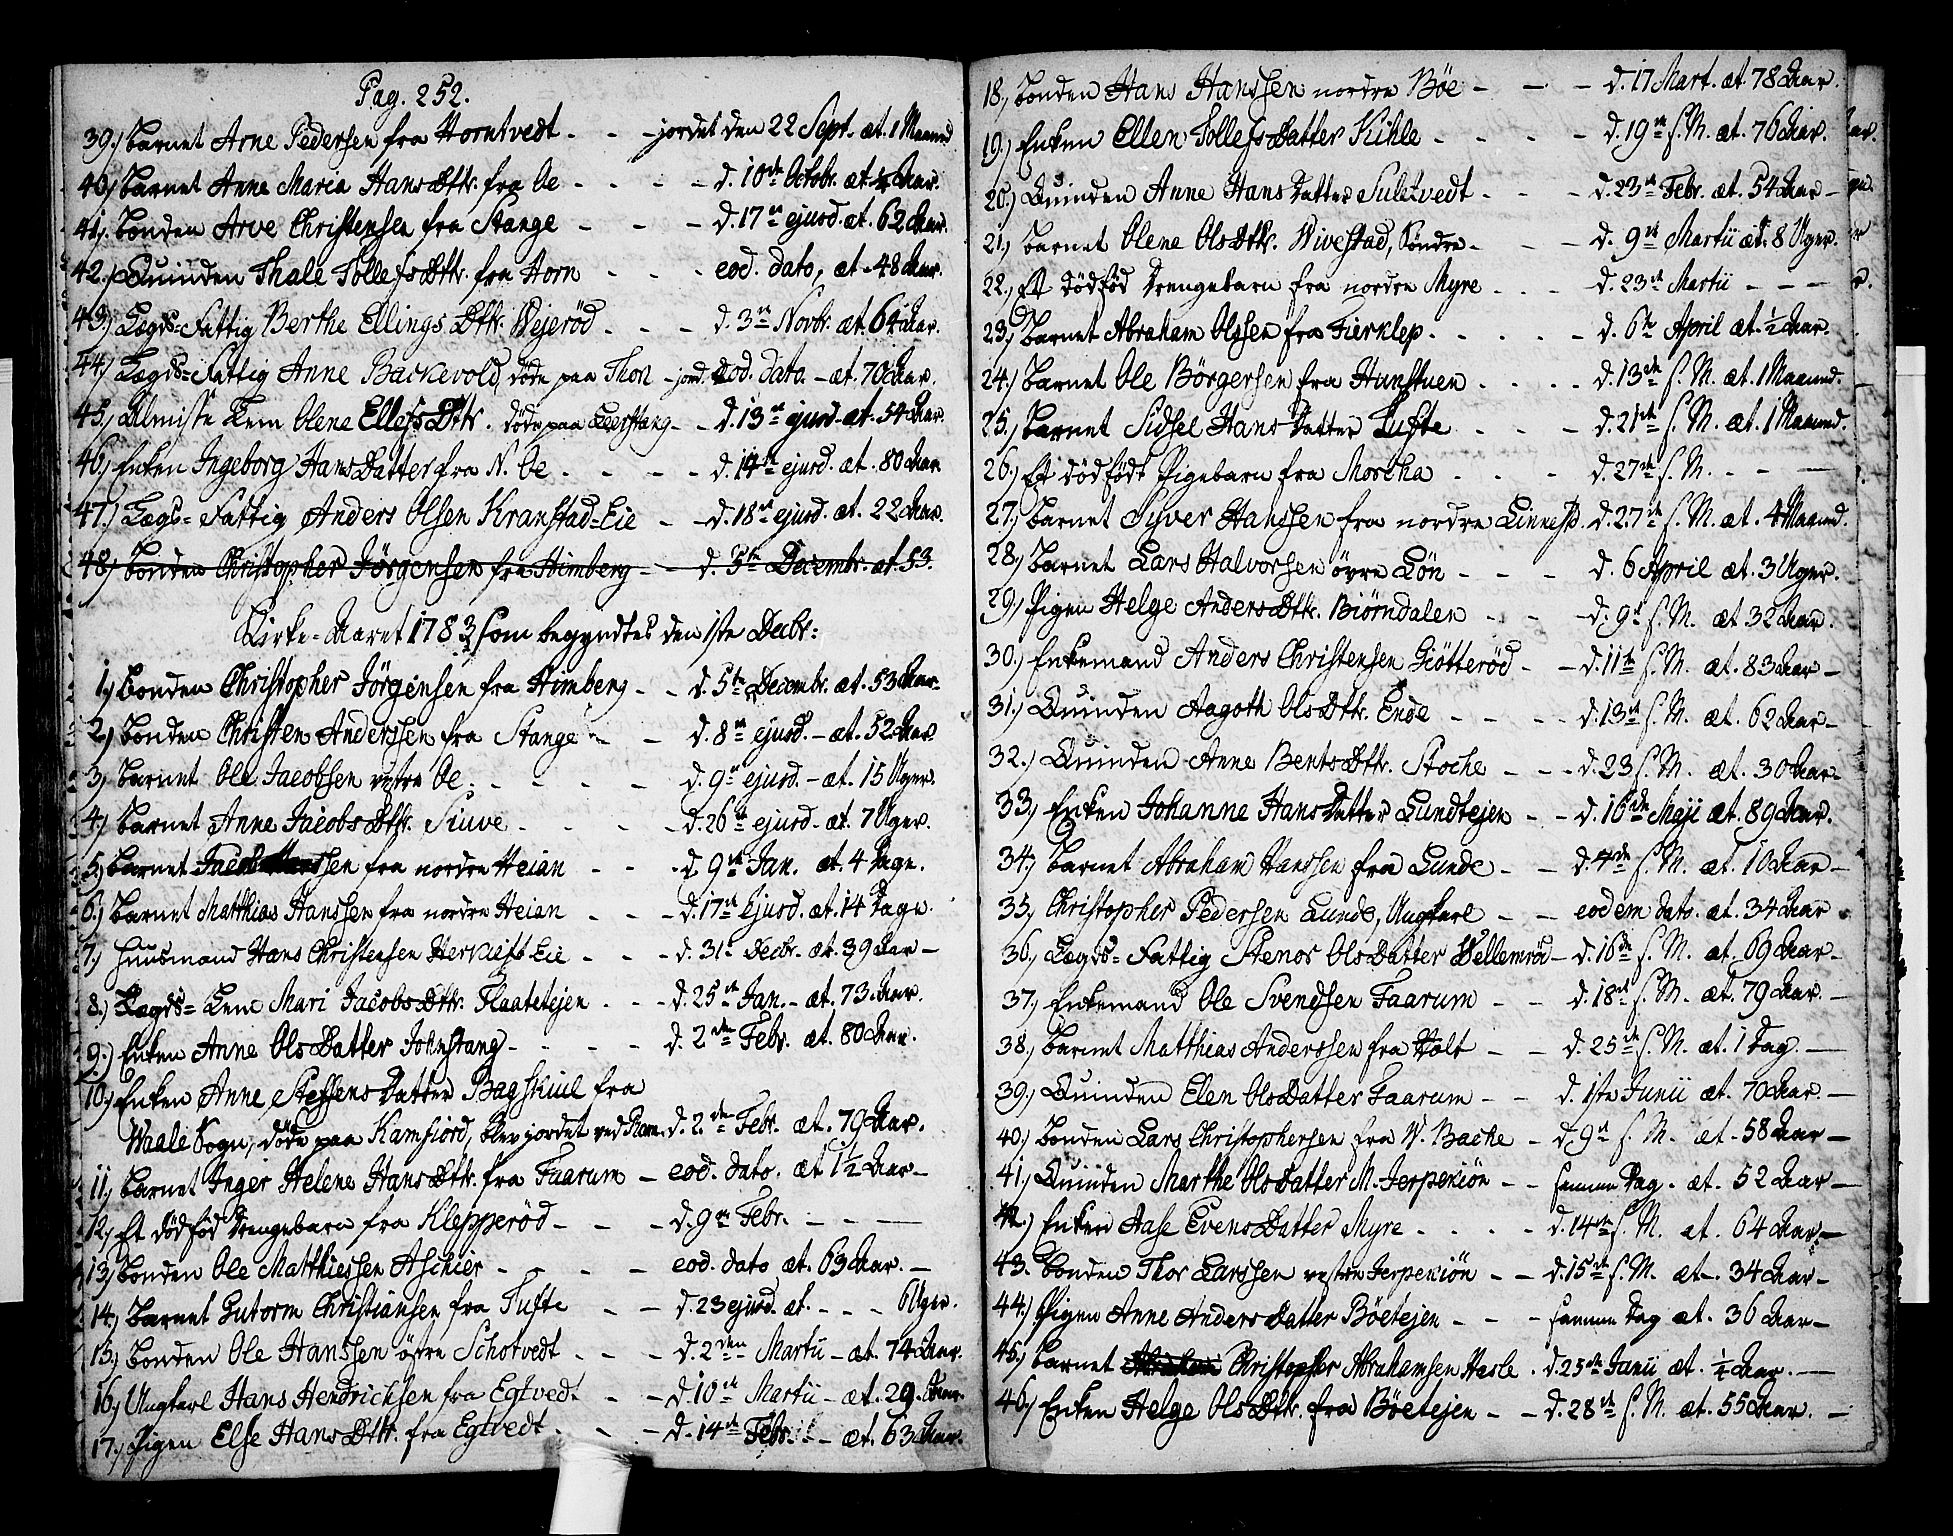 Pag. 252.
39.) Barnet Arne Pedersen fra Horntvedt - - - jordet den 22 Sept. æt. 1 Maaned
40.) Barnet Anne Maria Hans Dttr. fra Oe - - - - d. 10de Octobr. æt. Aar.
41.) Bonden Arve Christensen fra Stange - - - d. 17de ejusd. æt. 62 Aar.
42.) Quinden Thale Tollefs Dttr. fra Horn - - - eod. dato, æt. 48 Aar.
43.) Lægds-Fattig Berthe Ellings Dttr. Wejerød - - - d. 3de Novbr. æt. 64 Aar.
44.) Lægds-Fattig Anne Backevold, døde paa Thon - jord. eod. dato. - æt. 70 Aar.
45.) Almisse Lem Olene Ellefs Dttr. døde paa Leerstang - - d. 13de ejusd. æt. 54 Aar.
46.) Enken Ingeborg Hans Datter fra N. Oe - - - - d. 14de ejusd. æt. 80 Aar
47.) Lægds-Fattig Anders Olsen Kranstad-Eie - - d. 18de ejusd. æt. 22 Aar.
48.) Bonden Christopher Jørgensen fra Himberg - - d. 5te Decembr. æt. 53.
Kirke-Aaret 1783 som begyndtes den 1ste Decbr:
1.) Bonden Christopher Jørgensen fra Himberg - - d. 5te Decembr. æt. 53 Aar-
2.) Bonden Christen Anderssen fra Stange - - d. 8de ejusd. - æt. 52 Aar
3.) Barnet Ole Jacobsen vestre Oe - - - - d. 9de ejusd. - æt. 15 Uger.
4.) Barnet Anne Jacobs Dttr. Siuve - - - - d. 26de ejusd - æt. 7 Uger.
5.) Barnet fra nordre Heian - - - d. 9de Jan. æt. 4 Dage.
6.) Barnet Matthias Hanssen fra nordre Heian - - - d. 17de Ejusd. æt. 14 Dage.
7.) Huusmand Hans Christensen Eie - - - d. 31. Decbr. æt. 39 Aar -
8.) Lægds-Lem Mari Jacobs Dttr. Flaatetejen - - - d. 25de Jan. - æt. 73 Aar.
9.) Enken Anne Ols Datter Johnstang - - - - d. 2den Febr. æt. 80 Aar.
10.) Enken Anne Steffens Datter Bagskiul fra
Waale Sogn, døde paa Kamfiord, blev jordet ved Ram. d. 2den Febr. æt. 79 Aar.
11.) Barnet Inger Helene Hans Dttr. fra Faarum - eod. dato. æt 1½ Aar -
12.) Et dødfød Drengebarn fra Klepperød - - - d. 9de Febr. - - -
13.) Bonden Ole Matthiessen Aschier - - - - eod. dato æt. 63 Aar. -
14.) Barnet Gutorm Christiansen fra Tufte - - d. 23 ejusd. æt. - - - 6 Uger.
15.) Bonden Ole Hanssen østre Schotvedt - - - d. 2den Martii - æt. 74 Aar.
16.) Ungkarl Hans Hendrichsen fra Egtvedt - - d. 10de Martii - æt. 29. Aar.
17.) Pigen Else Hans Dttr. fra Egtvedt - - - d. 14de Febr. - - æt. 63 Aar.
18.) Bonden Hans Hanssen nordre Bøe - - - d. 17 Mart. æt. 78 Aar.
19.) Enken Ellen Tollefs Datter Kihle - - - - d. 19de s. M. æt. 76 Aar.
20.) Quinden Anne Hans Datter Suletvedt - - - d. 23de Febr. æt. 54 Aar -
21.) Barnet Olene Ols Dttr. Wivestad, Søndre - - - d. 9de Martii æt. 8 Uger.
22.) Et dødfød Drengebarn fra nordre Myre - - - d. 23de Martii - - -
23.) Barnet Abraham Olssen fra Fierklep - - - - d. 6te April æt. ½ Aar.
24.) Barnet Ole Børgersen fra Hunstuen - - - - d. 13de s. M. æt. 1 Maaned.
25.) Barnet Sidsel Hans Datter Tufte - - - d. 21de s. M. æt. 1 Maaned.
26.) Et dødfødt Pigebarn fra Moscha - - - d. 27de s. M. - - -
27.) Barnet Siver Hanssen fra nordre Linnest. d. 27de s. M. æt. 4 Maaned.
28.) Barnet Lars Halvorssen øvre Løn - - - d. 6 April æt. 3 Uger.
29.) Pigen Helge Anders Dttr. Biørndalen - - - d. 9de s. M. æt 32 Aar.
30.) Enkemand Anders Christensen Giøtterød - - d. 11te s. M. æt. 83 Aar -
31.) Quinden Aagoth Ols Dttr. Ende - - - - d. 13de s. M. æt. 62 Aar -
32.) Quinden Anne Bents Dttr. Stoche - - - d. 23 s. M. æt. 30 Aar -
33.) Enken Johanne Hans Datter Lundtejen - - d. 16de Maji æt. 89 Aar.
34.) Barnet Abraham Hanssen fra Lunde - - d. 4de s. M. æt. 10 Aar -
35.) Christopher Pedersen Lunde, Ungkarl - - eodem dato. æt. 34 Aar
36.) Lægds-Fattig Stenor Ols Datter Wellemrød - d. 16de s. M. æt. 69 Aar -
37.) Enkemand Ole Svendsen Faarum - - d. 18de s. M. æt. 79 Aar. -
38.) Barnet Matthias Anderssen fra Holt - - d. 25de s. M. æt. 1 Dag. -
39.) Quinden Elen Ols Datter Faarum - - d. 1ste Junii æt. 70 Aar. -
40.) Bonden Lars Christophersen fra W. Bache - d. 9de s. M. æt. 58 Aar -
41.) Quinden Marthe Ols Datter M. Jerpekiøn - - samme Dag. æt. 52 Aar -
42.) Enken Aase Evens Datter Myre - - - - d. 14de s. M. æt. 64 Aar -
43. Bonden Thor Larssen vestre Jerpekiøn - - d. 15de s. M. æt. 34 Aar -
44.) Pigen Anne Anders Datter Bøetejen - - - samme Dag æt. 36 Aar -
45.) Barnet Christopher Abrahamsen Hasle . d. 25de Junii æt. ¼ Aar. -
46.) Enken Helge Ols Dttr. fra Bøetejen - - d. 28de s. M. æt. 55 Aar. -